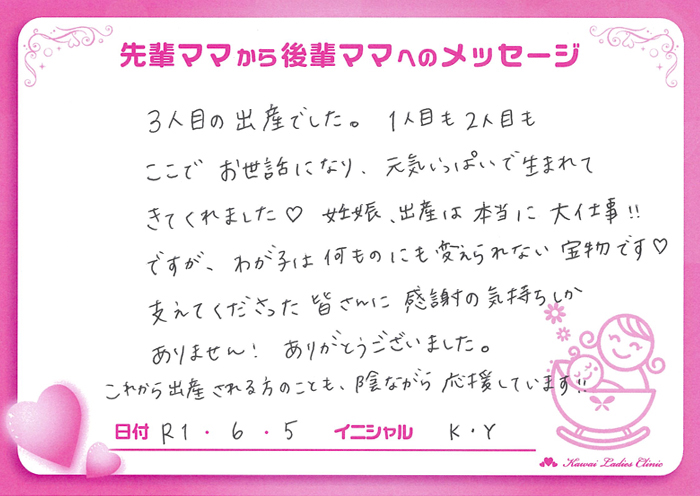 先輩ママから後輩ママへのメッセージ
3人目の出産でした。 1人目も2人目も
ここで お世話になり、元気いっぱいで生まれて
きてくれました♡ 妊娠、出産は 本当に 大仕事!!
ですが、わが子は 何ものにも変えられない 宝物です♡
支えてくださった 皆さんに 感謝の気持ちしか
ありません! ありがとうございました。
これから出産される方のことも、陰ながら 応援しています!!
日付 R1・6・5 イニシャル K・Y
Kawai Ladies Clinic